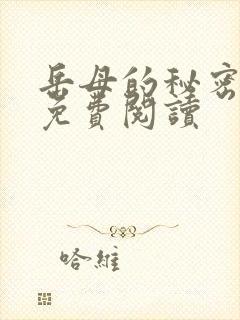 岳母的秘密
免費閱讀
哈維